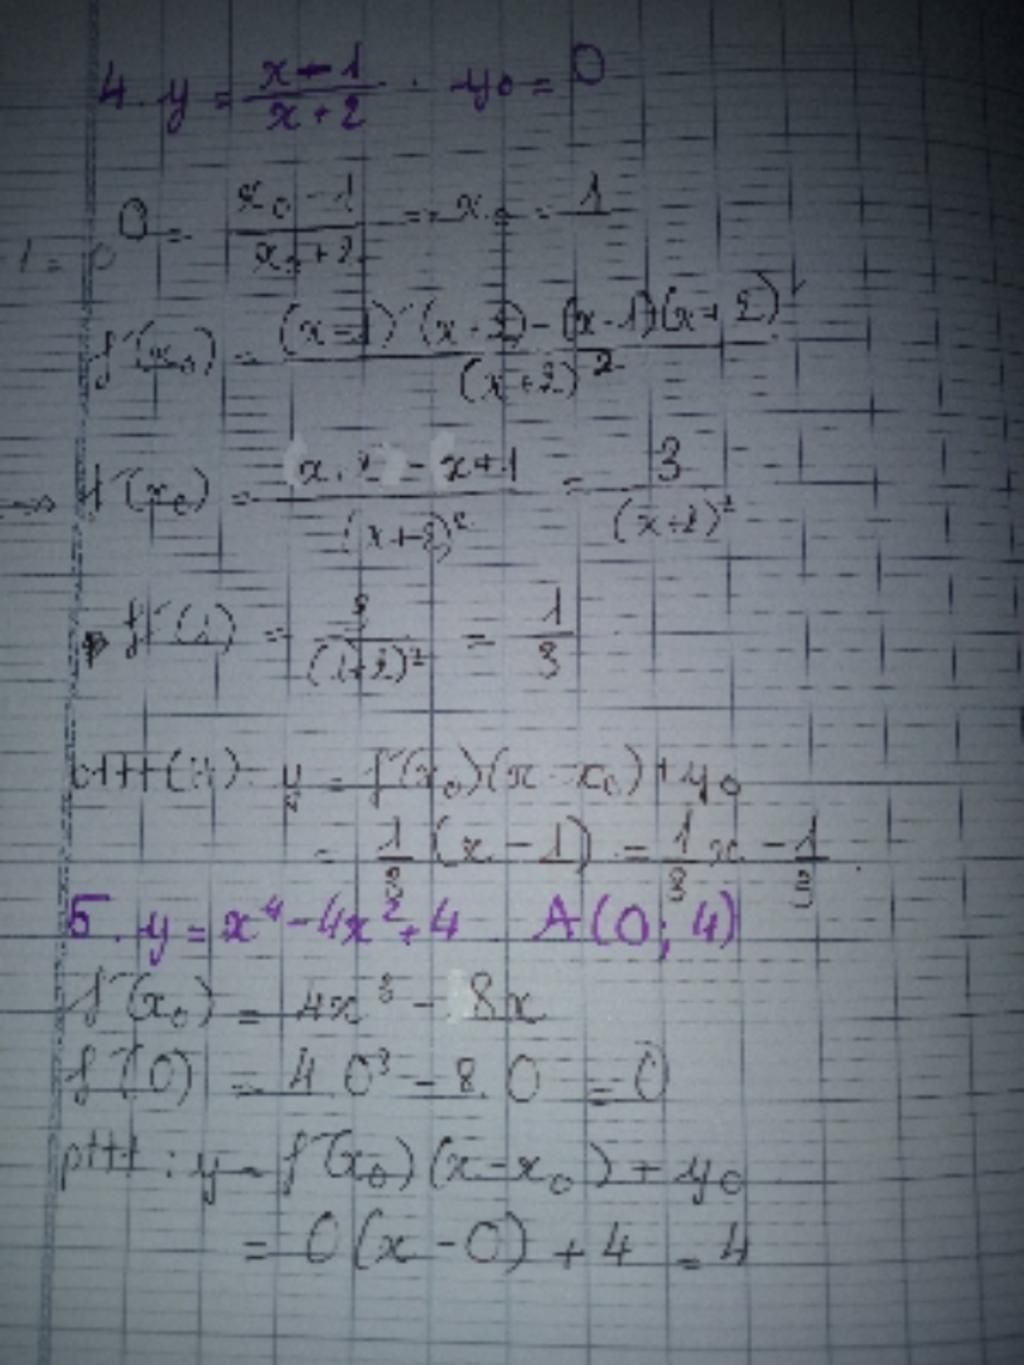 4. y = \frac{x-1}{x+2} . y_0 = 0
0 = \frac{x_0-1}{x_0+2} = x_0 = 1
f'(x_0) = \frac{(x-1)'(x+2)-(x-1)(x+2)'}{(x+2)^2}
=> f'(x_0) = \frac{(x+2)-(x+1}{(x+2)^2} = \frac{3}{(x+2)^2}
f'(1) = \frac{3}{(1+2)^2} = \frac{1}{3}
y = f'(x_0)(x-x_0)+y_0
= \frac{1}{3}(x-1) = \frac{1}{3}x - \frac{1}{3}.
5. y = x^4 - 4x^2 + 4 A(0; 4)
f'(x_0) = 4x^3 - 8x
f'(0) = 4.0^3 - 8.0 = 0
pttt : y = f'(x_0)(x-x_0)+y_0
= 0(x-0)+4 = 4